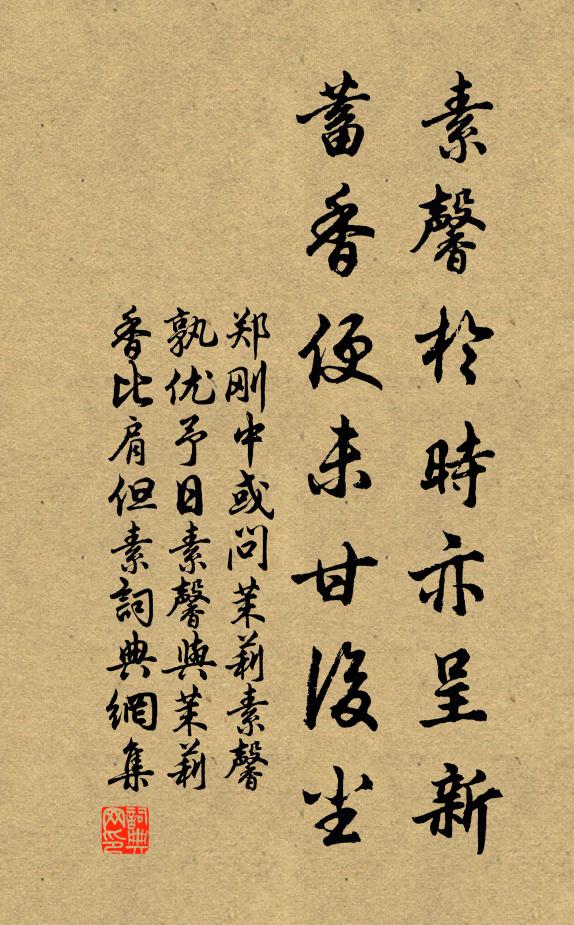 素馨於時亦呈新
蓄香便未甘後尘
郑刚中或问茉莉素馨
孰优予日素馨與茉莉
香比肩但素詞典網集
詞典网印